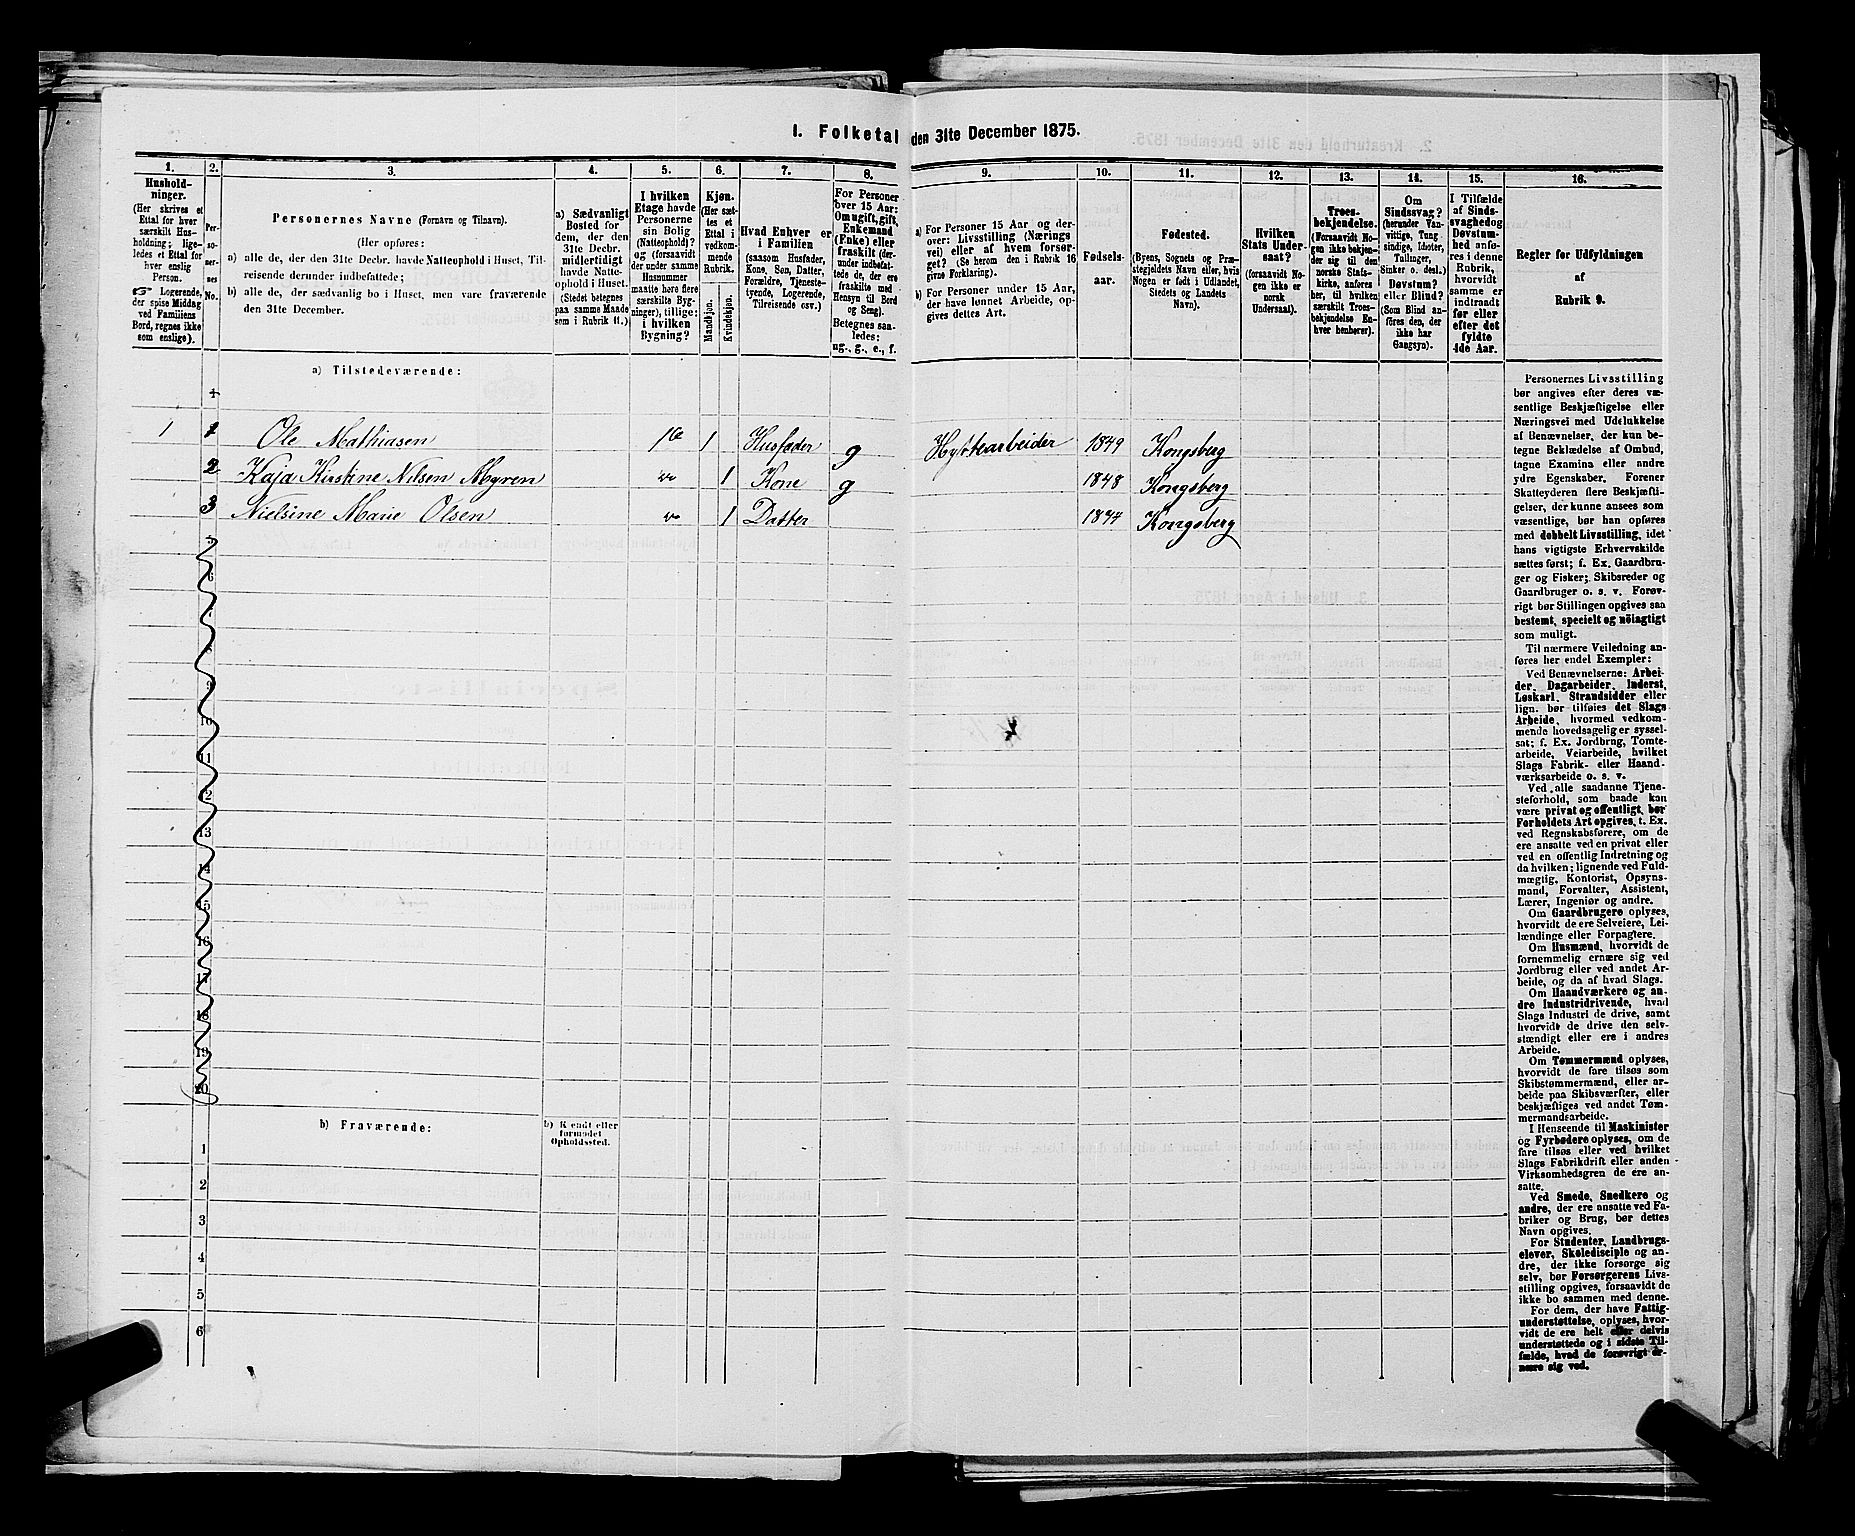 1. Folketal den 31te December 1875.
1. 2. 3. 4. 5. 6. 7. 8. 9. 10. 11. 12. 13. 14. 15. 16.
Hushold-
ninger.
(Her skrives et
Ettal for hver
særskilt Hus-
holdning; lige-
ledes et Ettal for
hver enslig
Person.
☞ Logerende,
der spise Middag
ved Familiens
Bord, regnes ikke
som enslige).
Per-
so-
ner-
nes
No.
Personernes Navne (Fornavn og Tilnavn).
(Her opføres:
a) alle de, der den 31te Decbr. havde Natteophold i Huset, Til-
reisende derunder indbefattede;
b) alle de, der sædvanlig bo i Huset, men vare fraværende
den 31te December.
a) Sædvanligt
Bosted for
dem, der den
31te Decbr.
midlertidigt
havde Natte-
ophold i Huset.
(Stedet betegnes
paa samme Maade
som i Rubrik 11.)
I hvilken
Etage havde
Personerne
sin Bolig
(Natteophold)?
og (forsaavidt
der under samme
Husnummer
maatte høre flere
særskilte Byg-
ninger), tillige:
i hvilken
Bygning?
Kjøn.
(Her sæt-
tes et
Ettal i
vedkom-
mende
Rubrik.
Mandkjøn.
Kvindekjøn.
Hvad Enhver er
i Familien
(saasom Husfader,
Kone, Søn, Datter,
Forældre, Tjeneste-
tyende, Logerende,
Tilreisende osv.)
For Personer
over 15 Aar:
Om ugift, gift,
Enkemand
(Enke) eller
fraskilt (der-
under indbefat-
tede de, der ere
fraskilte med
Hensyn til Bord
og Seng).
Betegnes saa-
ledes:
ug., g., e., f.
a) For Personer 15 Aar og der-
over: Livsstilling (Nærings
vei) eller af hvem forsør-
get? (Se herom den i Rubrik 16
givne Forklaring).
b) For Personer under 15 Aar,
der have lønnet Arbeide, op-
gives dettes Art.
Fødsels-
aar.
Fødested.
(Byens, Sognets og Præ-
stegjeldets Navn eller, hvis
Nogen er født i Udlandet,
Stedets og Landets
Navn).
Hvilken
Stats Under-
saat?
(forsaavidt No-
gen ikke er
norsk
Undersaat).
Troes-
bekjendelse.
(Forsaavidt No-
gen ikke bekjen-
der sig til den
norske Stats-
kirke, anføres
her, til hvilken
særskilt Troes-
bekjendelse En-
hver henhører).
Om
Sindssvag?
(herunder Van-
vittige, Tung-
sindige, Idioter,
Tullinger,
Sinker o. desl.)
Døvstum?
eller Blind?
(Som Blind an-
føres den, der
ikke har
Gangsyn).
I Tilfælde
af Sinds-
svaghed og
Døvstum-
hed anfø-
res i denne
Rubrik,
hvorvidt
samme er
indtraadt
før eller
efter det
fyldte
4de Aar.
Regler for Udfyldningen
af
Rubrik 9.
a) Tilstedeværende:
1 1 Ole Mathiasen 1 Husfader g Hyttearbeider 1849 Kongsberg
2 Kaja Kirstine Nilsen Myren 1 Kone g 1848 Kongsberg
3 Nielsine Marie Olsen 1 Datter Kongsberg
6
7
9
10
11
12
13
14
15
16
17
18
19
20
b) Fraværende:
b) Kjendt eller
formodet
Opholdssted.
1
2
3
4
5
6
Personernes Livsstilling
bør angives efter deres væ-
sentlige Beskjæftigelse eller
Næringsvei med Udelukkelse
af Benævnelser, der kun be-
tegne Beklædelse af Ombud,
tagne Examina eller andre
ydre Egenskaber. Forener
Skatteyderen flere Beskjæfti-
gelser, der kunne ansees som
væsentlige, bør han opføres
med dobbelt Livsstilling, idet
hans vigtigste Erhvervskilde
sættes først; f. Ex. Gaardbru-
ger og Fisker; Skibsreder og
Gaardbruger o. s. v. Forøv-
rigt bør Stillingen opgives saa
bestemt, specielt og nöiagtigt
som muligt.
Til nærmere Veiledning an-
føres her endel Exempler:
Ved Benævnelserne: Arbei-
der, Dagarbeider, Inderst,
Løskarl, Strandsidder eller
lign. bør tilføies det Slags
Arbeide, hvormed vedkom-
mende hovedsagelig er syssel-
sat; f. Ex. Jordbrug, Tomte-
arbeide, Veiarbeide, hvilket
Slags Fabrik- eller Haand-
værksarbeide o. s. v.
Ved alle saadanne Tjene-
steforhold, som baade kan
være privat og offentligt, bør
Forholdets Art opgives, t. Ex.
ved Regnskabsførere, om de
ere ansatte ved en privat eller
ved en offentlig Indretning og
da hvilken; lignende ved Fuld-
mægtig, Kontorist, Opsyns-
mand, Forvalter, Assistent,
Lærer, Ingeniør og andre.
Om Gaardbrugere oplyses,
hvorvidt de ere Selveiere, Lei-
lændinge eller Forpagtere.
Om Husmænd, hvorvidt de
fornemmelig ernære sig ved
Jordbrug eller ved andet Ar-
beide, og da af hvad Slags.
Om Haandværkere og an-
dre Industridrivende, hvad
Slags Industri de drive, samt
hvorvidt de drive den selv-
stændigt eller ere i andres
Arbeide.
Om Tømmermænd oplyses,
hvorvidt de fare tilsøs som
Skibstømmermænd, eller ar-
beide paa Skibsværfter, eller
beskjæftiges ved andet Tøm-
mermandsarbeide.
I Henseende til Maskinister
og Fyrbødere oplyses, om de
fare tilsøs eller ved hvilket
Slags Fabrikdrift eller anden
Virksomhedsgren de ere an-
satte.
Ved Smede, Snedkere og
andre, der ere ansatte ved Fa-
briker og Brug, bør dettes
Navn opgives.
For Studenter, Landbrugs-
elever, Skoledisciple og an-
dre, der ikke forsørge sig
selv, bør Forsørgerens Livs-
stilling opgives, forsaavidt de
ikke bo sammen med denne.
For dem, der have Fattig-
understøttelse, oplyses, hvor-
vidt de ere helt eller delvis
understøttede og i sidste Til-
fælde, hvad de forøvrigt er-
nære sig ved.